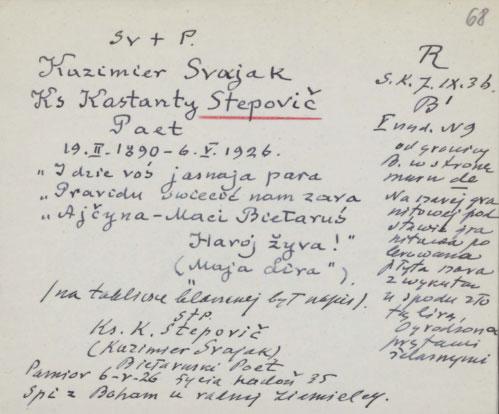 68
Sv + P.
Kazimier Svajak
Ks Kastanty Stepovič
Paet
19.II.1890-6.V.1926.
„Idzie voś jasnaja para
„Pravidu świecić nam zara
„Ajčyna-Maci Biełaruś
Haroj žyva!"
(„Maja Lira").
(na tabliczce blaszanej był napis).
S+P.
Ks. K. Stepovič
(Kazimier Svajak)
Biełaruski Poet
Pamior 6-V-26 życia hadoŭ 35
Spi z Boham u rodnej ziamielcy.
R
S.K. 7.IX.36.
B'
I rząd. N9
od granicy
B. w stronę
muru de
Na szarej gra
nitowej pod
stawie gra
nitowa po
lerowana
płyta szara
z wykutą
u spodu zło
tą lirą.
Ogrodzona
prętami
żelaznymi